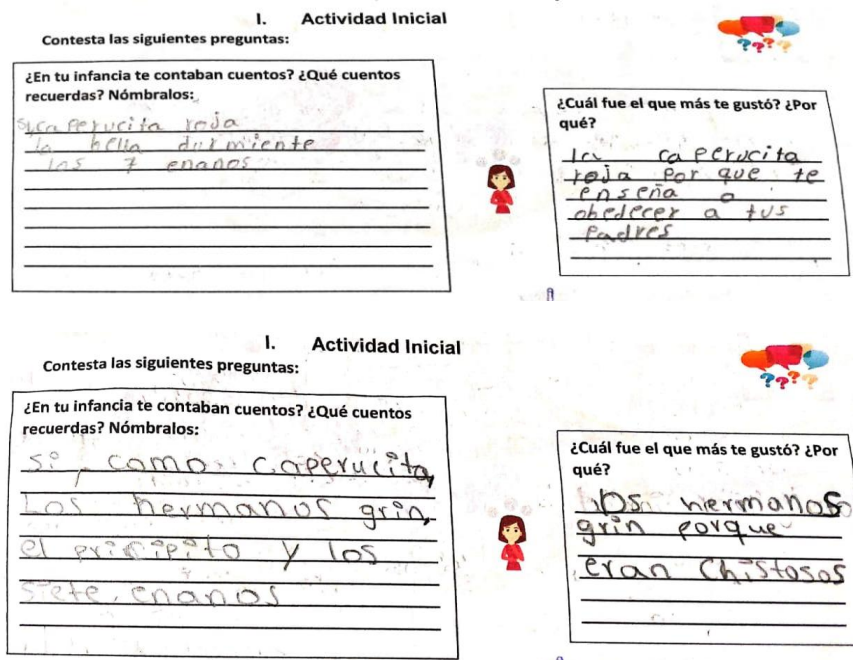 I. Actividad Inicial
Contesta las siguientes preguntas:
¿En tu infancia te contaban cuentos? ¿Qué cuentos
recuerdas? Nómbralos:
si,caperucita roja
la bella durmiente
las 7 enanos
¿Cuál fue el que más te gustó? ¿Por
qué?
la caperucita
roja por que te
enseña a
obedecer a tus
padres
I. Actividad Inicial
Contesta las siguientes preguntas:
¿En tu infancia te contaban cuentos? ¿Qué cuentos
recuerdas? Nómbralos:
si, como caperucita,
Los hermanos grin,
el principito y los
siete enanos
¿Cuál fue el que más te gustó? ¿Por
qué?
los hermanos
grin porque
eran chistosos